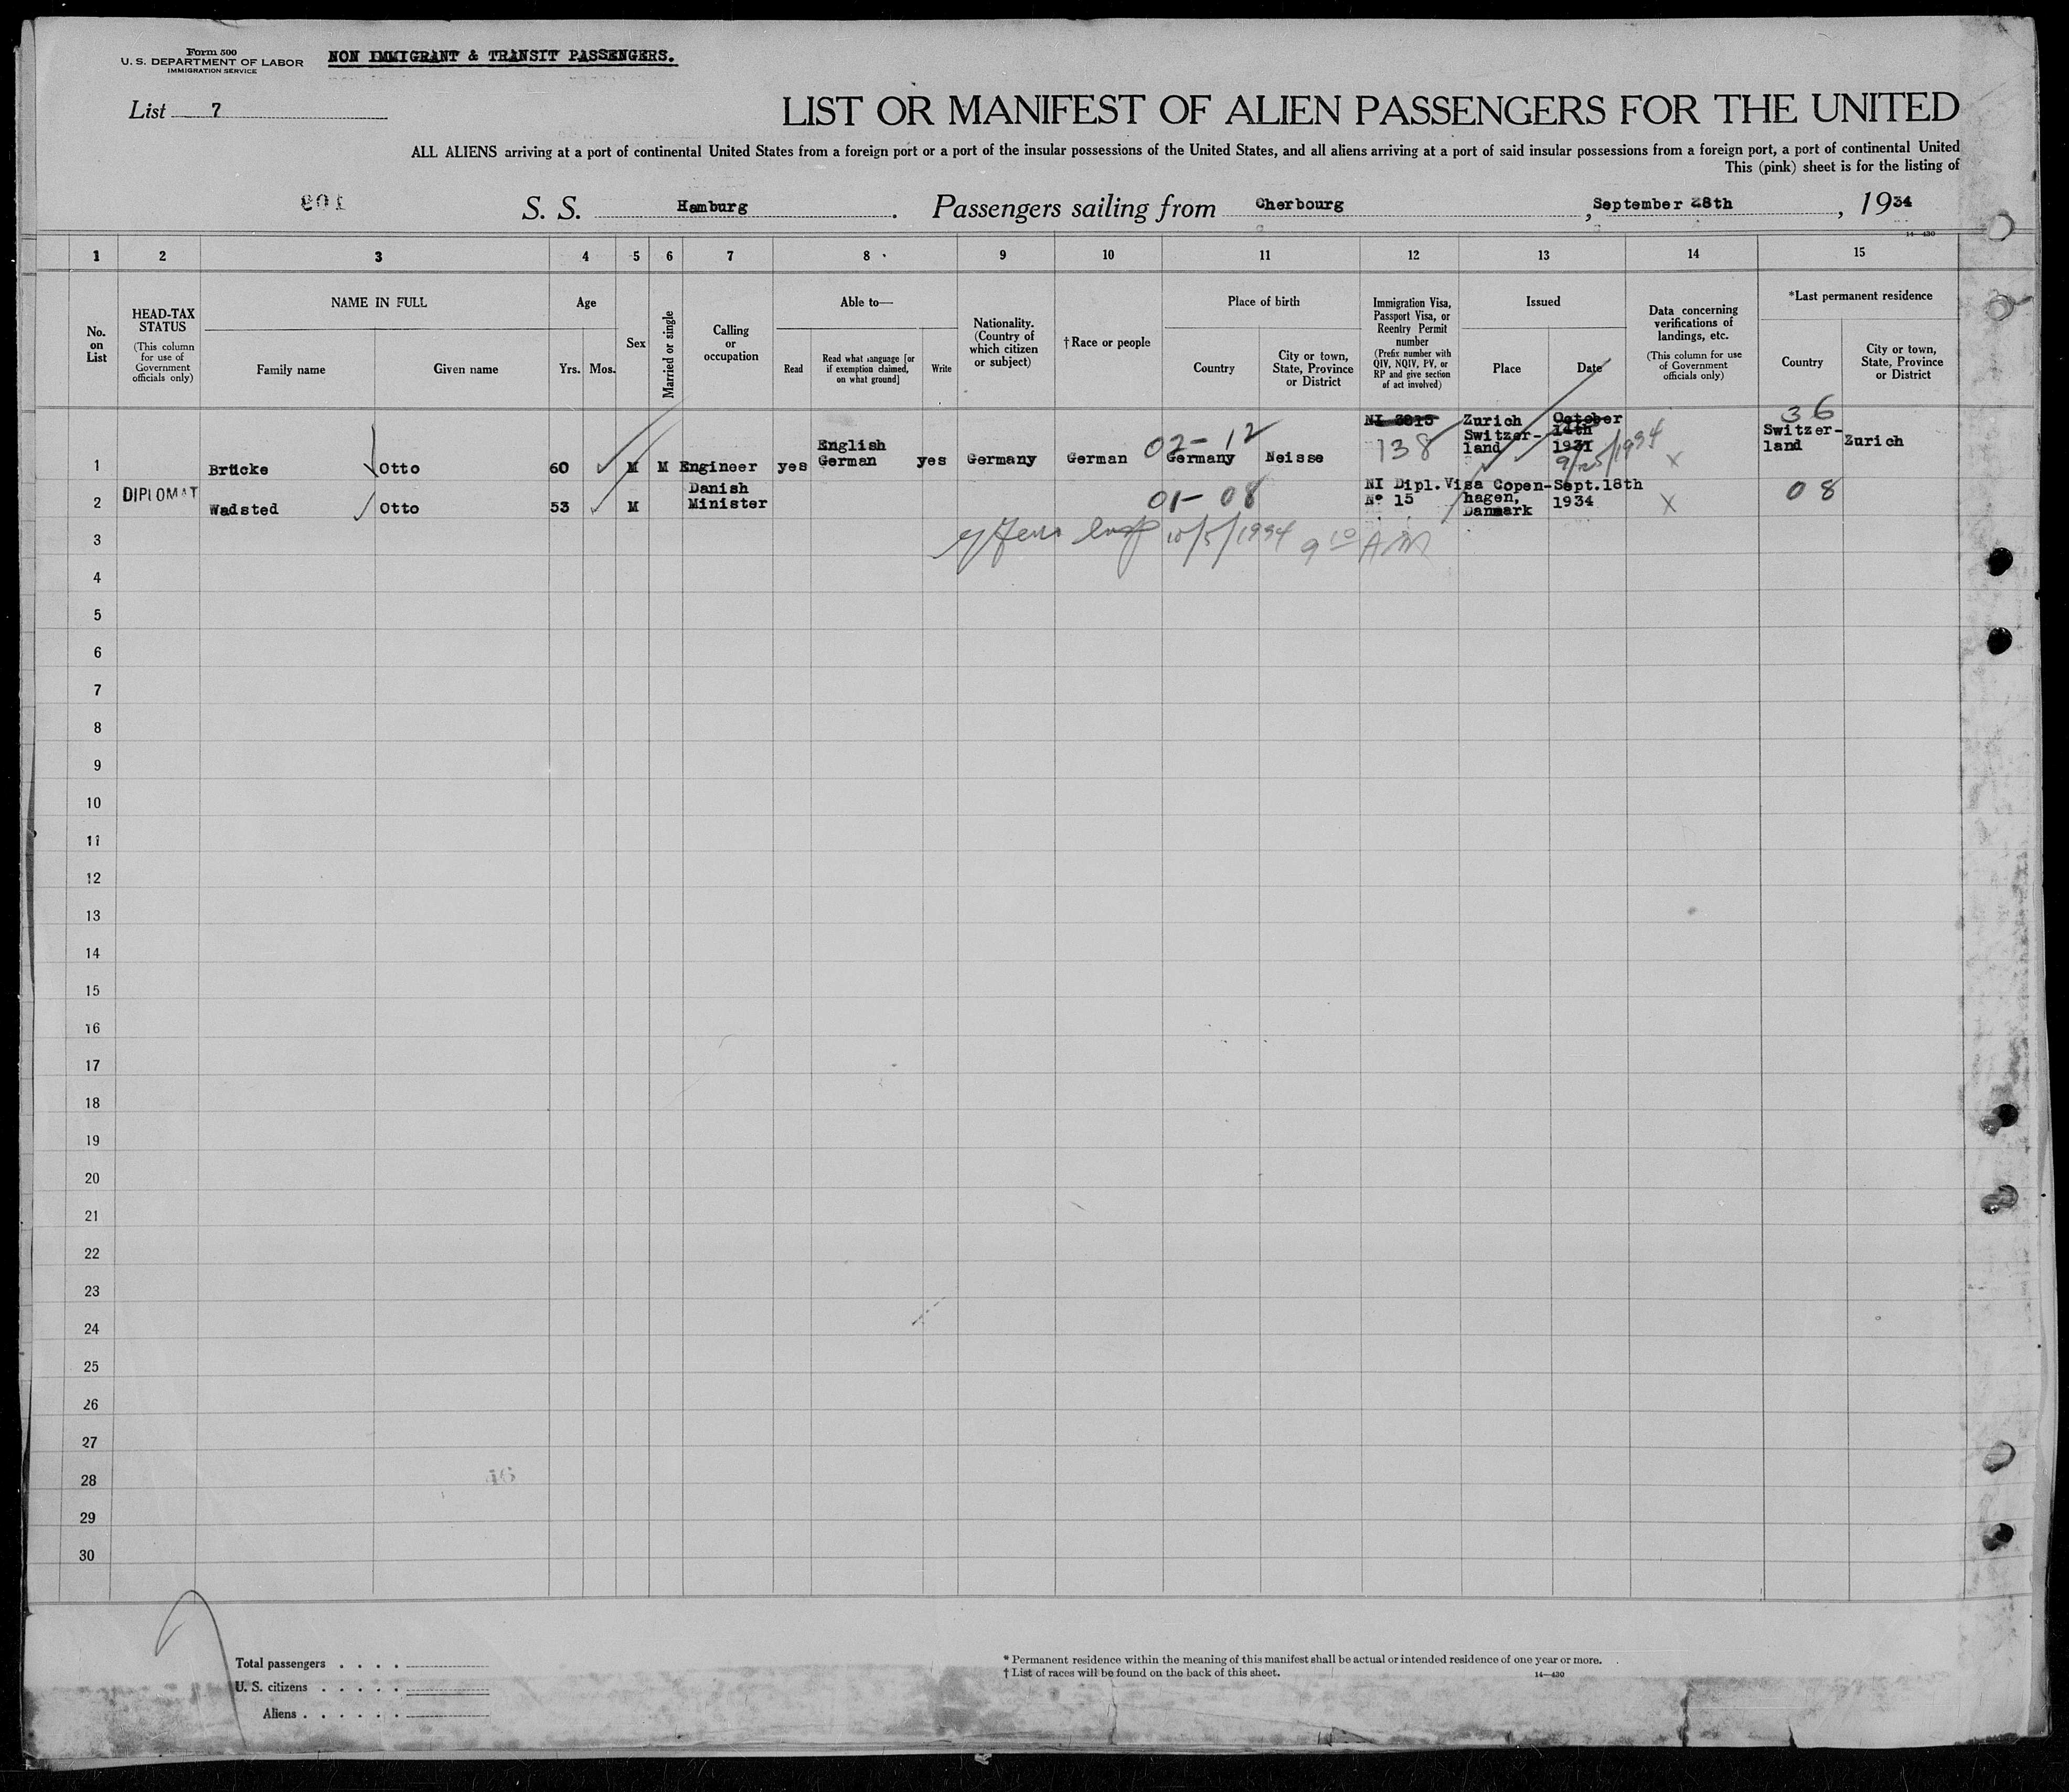 Form 500
U. S. DEPARTMENT OF LABOR
IMMIGRATION SERVICE
NON IMMIGRANT & TRANSIT PASSENGERS.
List 7
LIST OR MANIFEST OF ALIEN PASSENGERS FOR THE UNITED
ALL ALIENS arriving at a port of continental United States from a foreign port or a port of the insular possessions of the United States, and all aliens arriving at a port of said insular possessions from a foreign port, a port of continental United
This (pink) sheet is for the listing of
S. S. Hamburg. Passengers sailing from Cherbourg, September 28th, 1934
14—430
1 2 3 4 5 6 7 8 9 10 11 12 13 14 15
No.
on
List
HEAD-TAX
STATUS
(This column
for use of
Government
officials only)
NAME IN FULL
Family name
Given name
Age
Yrs. Mos.
Sex
Married or single
Calling
or
occupation
Able to—
Read
Read what language [or
if exemption claimed,
on what ground]
Write
Nationality.
(Country of
which citizen
or subject)
†Race or people
Place of birth
Country
City or town,
State, Province
or District
Immigration Visa,
Passport Visa, or
Reentry Permit
number
(Prefix number with
QIV, NQIV, PV, or
RP and give section
of act involved)
Issued
Place
Date
Data concerning
verifications of
landings, etc.
(This column for use
of Government
officials only)
*Last permanent residence
Country
City or town,
State, Province
or District
1 Brücke Otto 60 M M Engineer yes
English
German
yes Germany German
02-12
Germany Neisse
138
Zurich
Switzer-
land
October
14th
1931
9/25/1934
X
36
Switzer-
land
Zurich
2 DIPLOMAT Wadsted Otto 53 M
Danish
Minister
01-08
NI Dipl. Visa Copen- Sept. 18th
Nº 15 hagen, 1934
Danmark
X
08
3
10/5/1934 9 10 AM
4
5
6
7
8
9
10
11
12
13
14
15
16
17
18
19
20
21
22
23
24
25
26
27
28
29
30
Total passengers . . . .
U. S. citizens . . . . .
Aliens . . . . . .
* Permanent residence within the meaning of this manifest shall be actual or intended residence of one year or more.
† List of races will be found on the back of this sheet.
14—430